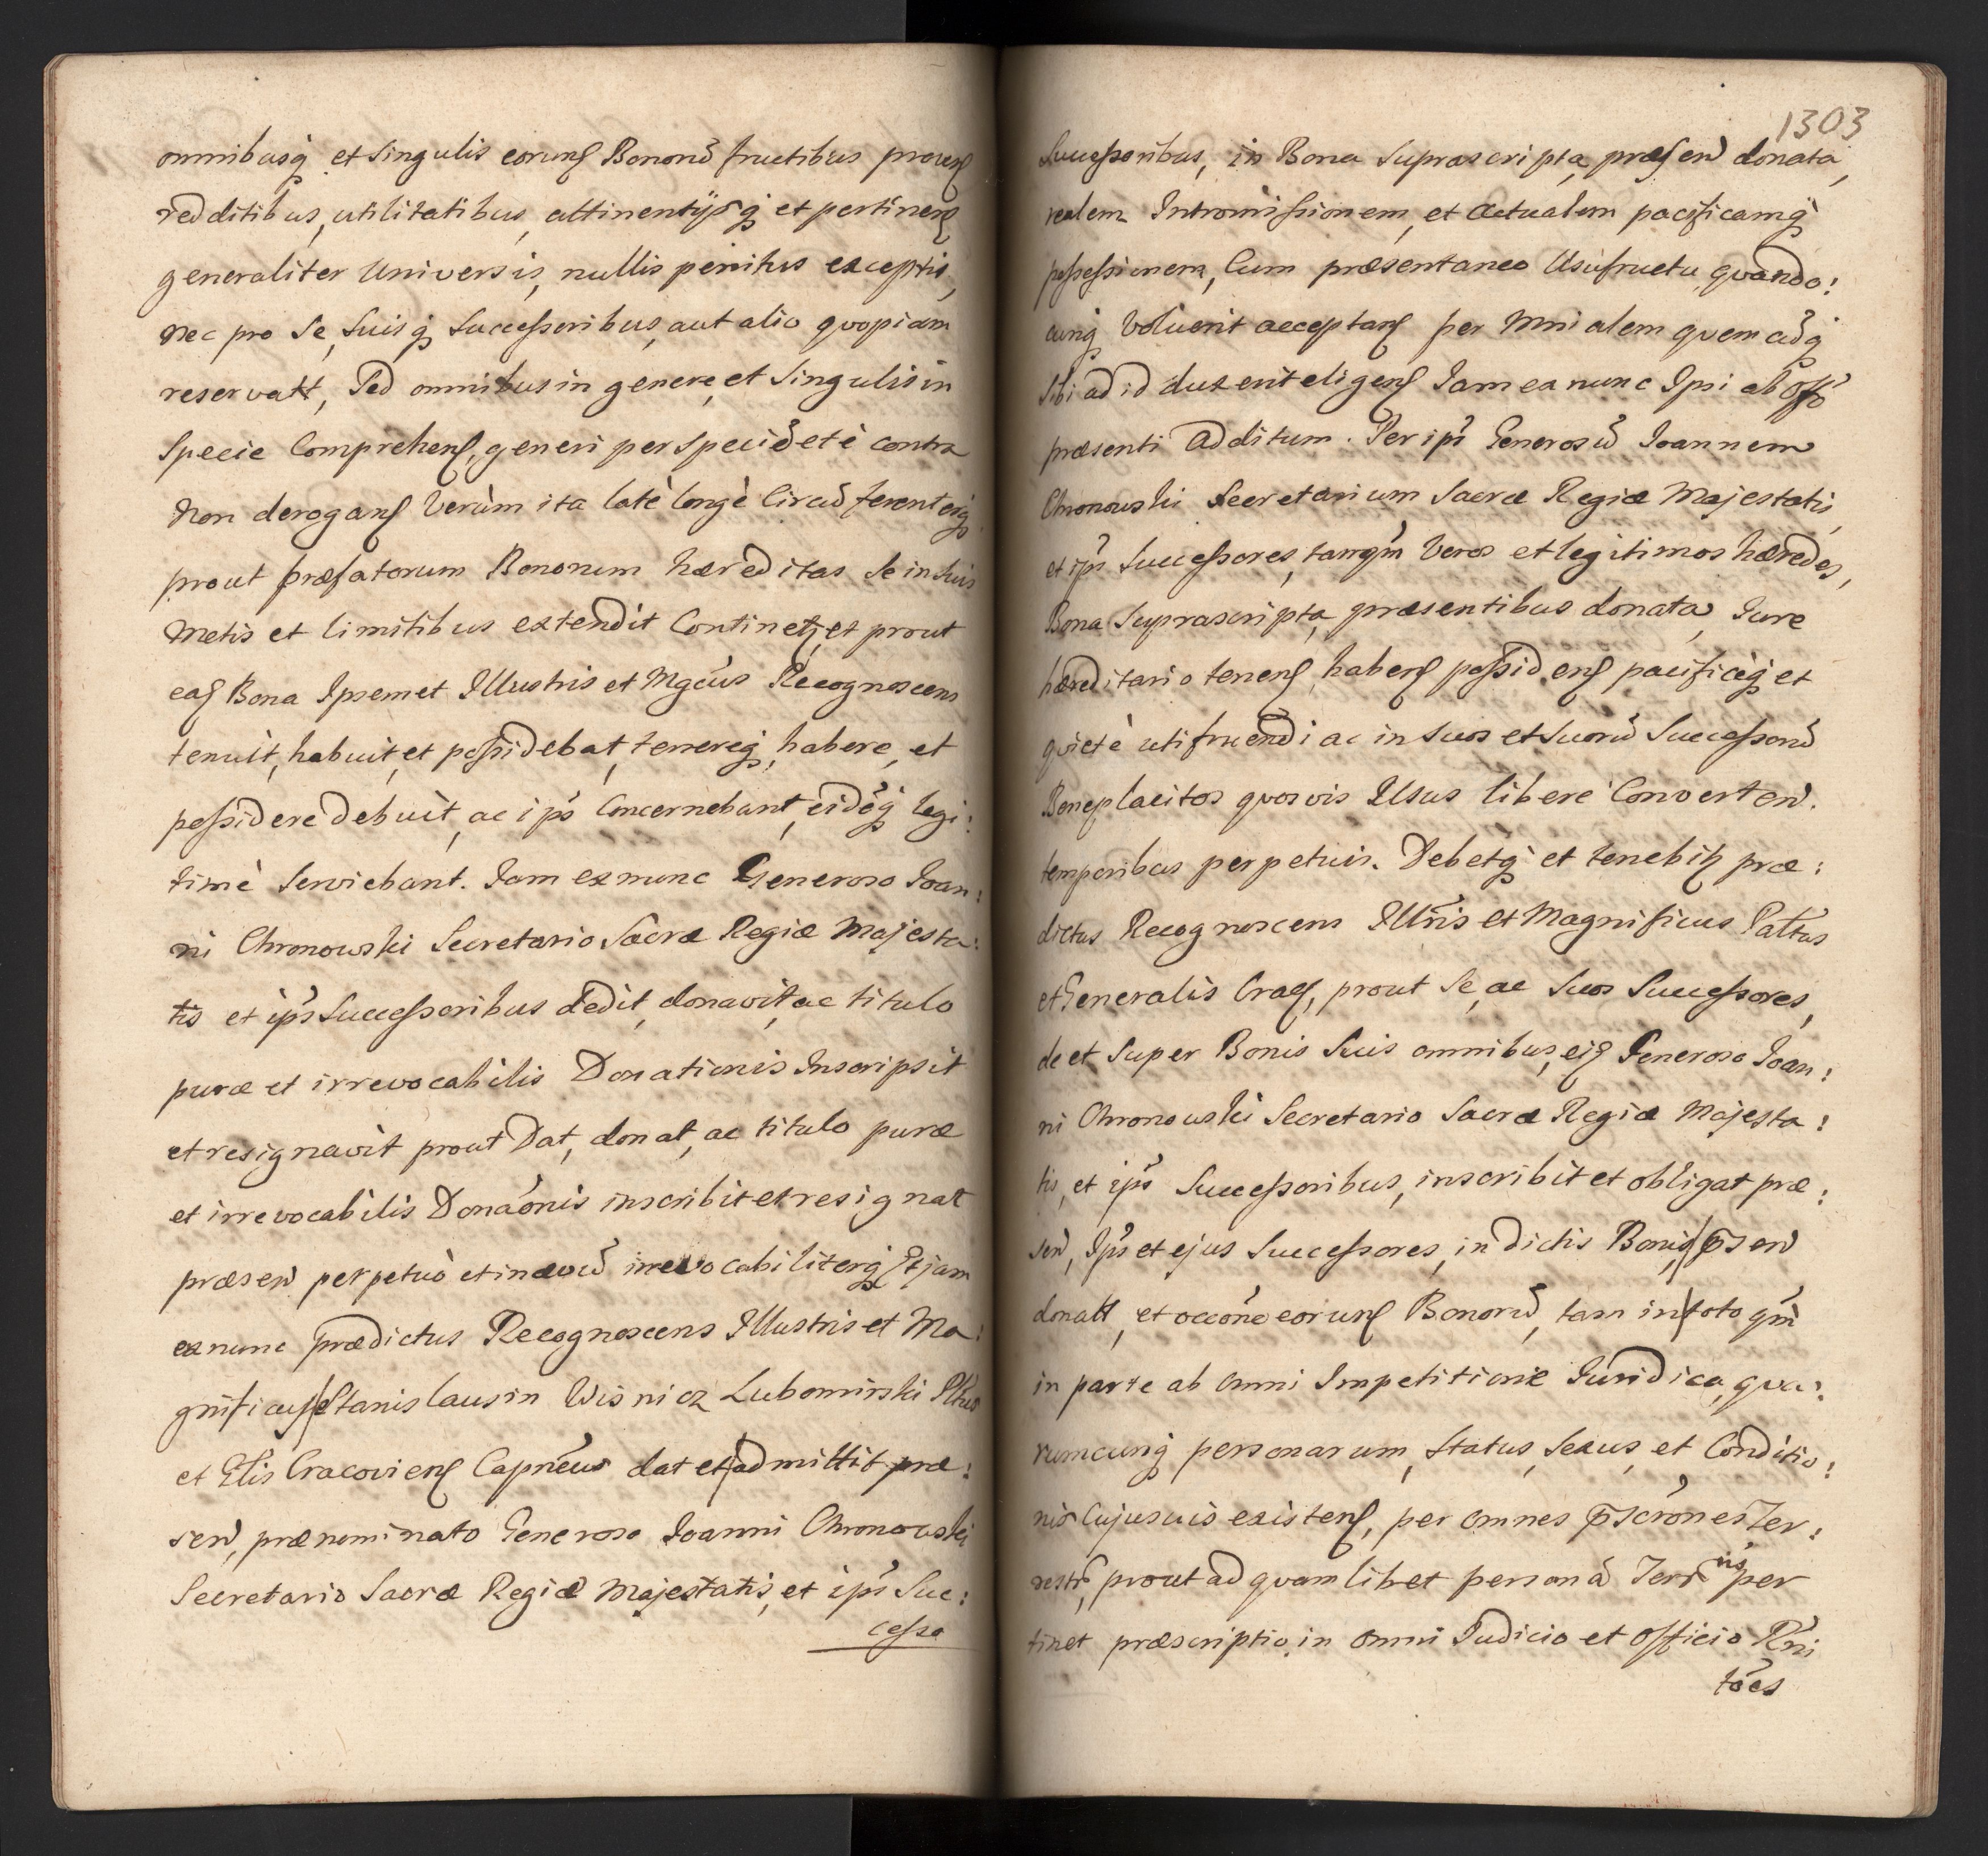 omnibusq̃ et Singulis eorunḑ Bonorũ fructibus provenꝭ
redditibus, utilitatibus, attinentÿsq̃ et pertinenꝭ
generaliter Universis, nullis penitus exceptis,
nec pro Se, Suisq̃ Successoribus, aut alio qvopiam
reservatt, Sed omnibus in genere, et Singulis in
Specie Comprehenꝭ, generi per Speciẽ et è contra
Non deroganꝭ Verùm ita latè longè Circũferenterq̃
prout præfatorum Bonorum hæreditas Se in Suis
Metis et limitibus extendit Continetꝫ et prout
eaꝭ Bona Ipsemet Illustris et Mgcus Recognoscens
tenuit, habuit, et possidebat, tenereq̃, habere, et
possidere debuit, ac ips̃ Concernebant, eidẽq̃ legi:
timè Serviebant. Jam ex nunc Generoso Joan:
ni Chronowski Secretario Sacræ Regiæ Majesta:
tis et ips̃ Successoribus dedit, donavit, ac titulo
puræ et irrevocabilis Donationis Inscripsit
et resignavit prout Dat, donat, ac titulo puræ
et irrevocabilis Donaõnis inscribit et resignat
præsen̄ perpetuò et in ævũ irrevocabiliterq̃ Et jam
ex nunc prædictus Recognoscens Illustris et Ma:
gnificus Stanislaus in Wisnicz Lubomirski Pltus
et Glis Cracovienꝭ Capneus dat et admittit præ:
sen̄, prænominato Generoso Joanni Chronowski
Secretario Sacræ Regiæ Majestatis, et ips̃ Suc:
cesso
1303
Successoribus, in Bona Suprascripta, præsen̄ donata,
realem Intromissionem, et actualem pacificamq̃
possessionem, Cum præsentaneo Usufructu qvando:
cunq̃ Voluerit acceptanꝭ per Mnialem qvemcũq̃
Sibi ad id duxerit eligenꝭ Jam ex nunc Ipsi ab Offo
præsenti additum. Per ips̃ Generosũ Joannem
Chronowski Secretarium Sacræ Regiæ Majestatis,
et ips̃ Successores, tanqm̃ Veros et legitimos hæredes,
Bona Suprascripta, præsentibus donata, Jure
hæreditario tenenꝭ, habenꝭ possidenꝭ pacificèq̃ et
qvietè utifruendi ac in Suos et Suorũ Successorũ
Beneplacitos qvosvis Usus liberè Converten̄.
temporibus perpetuis. Debetq̃ et tenebitꝫ præ:
dictus Recognoscens Illr̃is et Magnificus Paltus
et Generalis Cracꝭ, prout Se, ac Suos Successores,
de et Super Bonis Suis omnibus, eiꝭ Generoso Joan:
ni Chronowski Secretario Sacræ Regiæ Majesta:
tis, et ips̃ Successoribus, inscribit et obligat præ:
sen̄, Ips̃ et ejus Successores, in dictis Bonis, p̃sen̄
donatt, et occõne eorunꝭ Bonorũ, tam in toto qm̃
in parte ab omni Impetitione Juridica, qva:
rumcunq̃ personarum, Status, Sexus, et Conditio:
nis Cujusvis existenꝭ, per omnes p̃scr̃ones Ter:
restr̃, prout ad qvamlibet personã Terr̃ıis per
tinet præscriptio, in omni Judicio et officio Rñi
tões